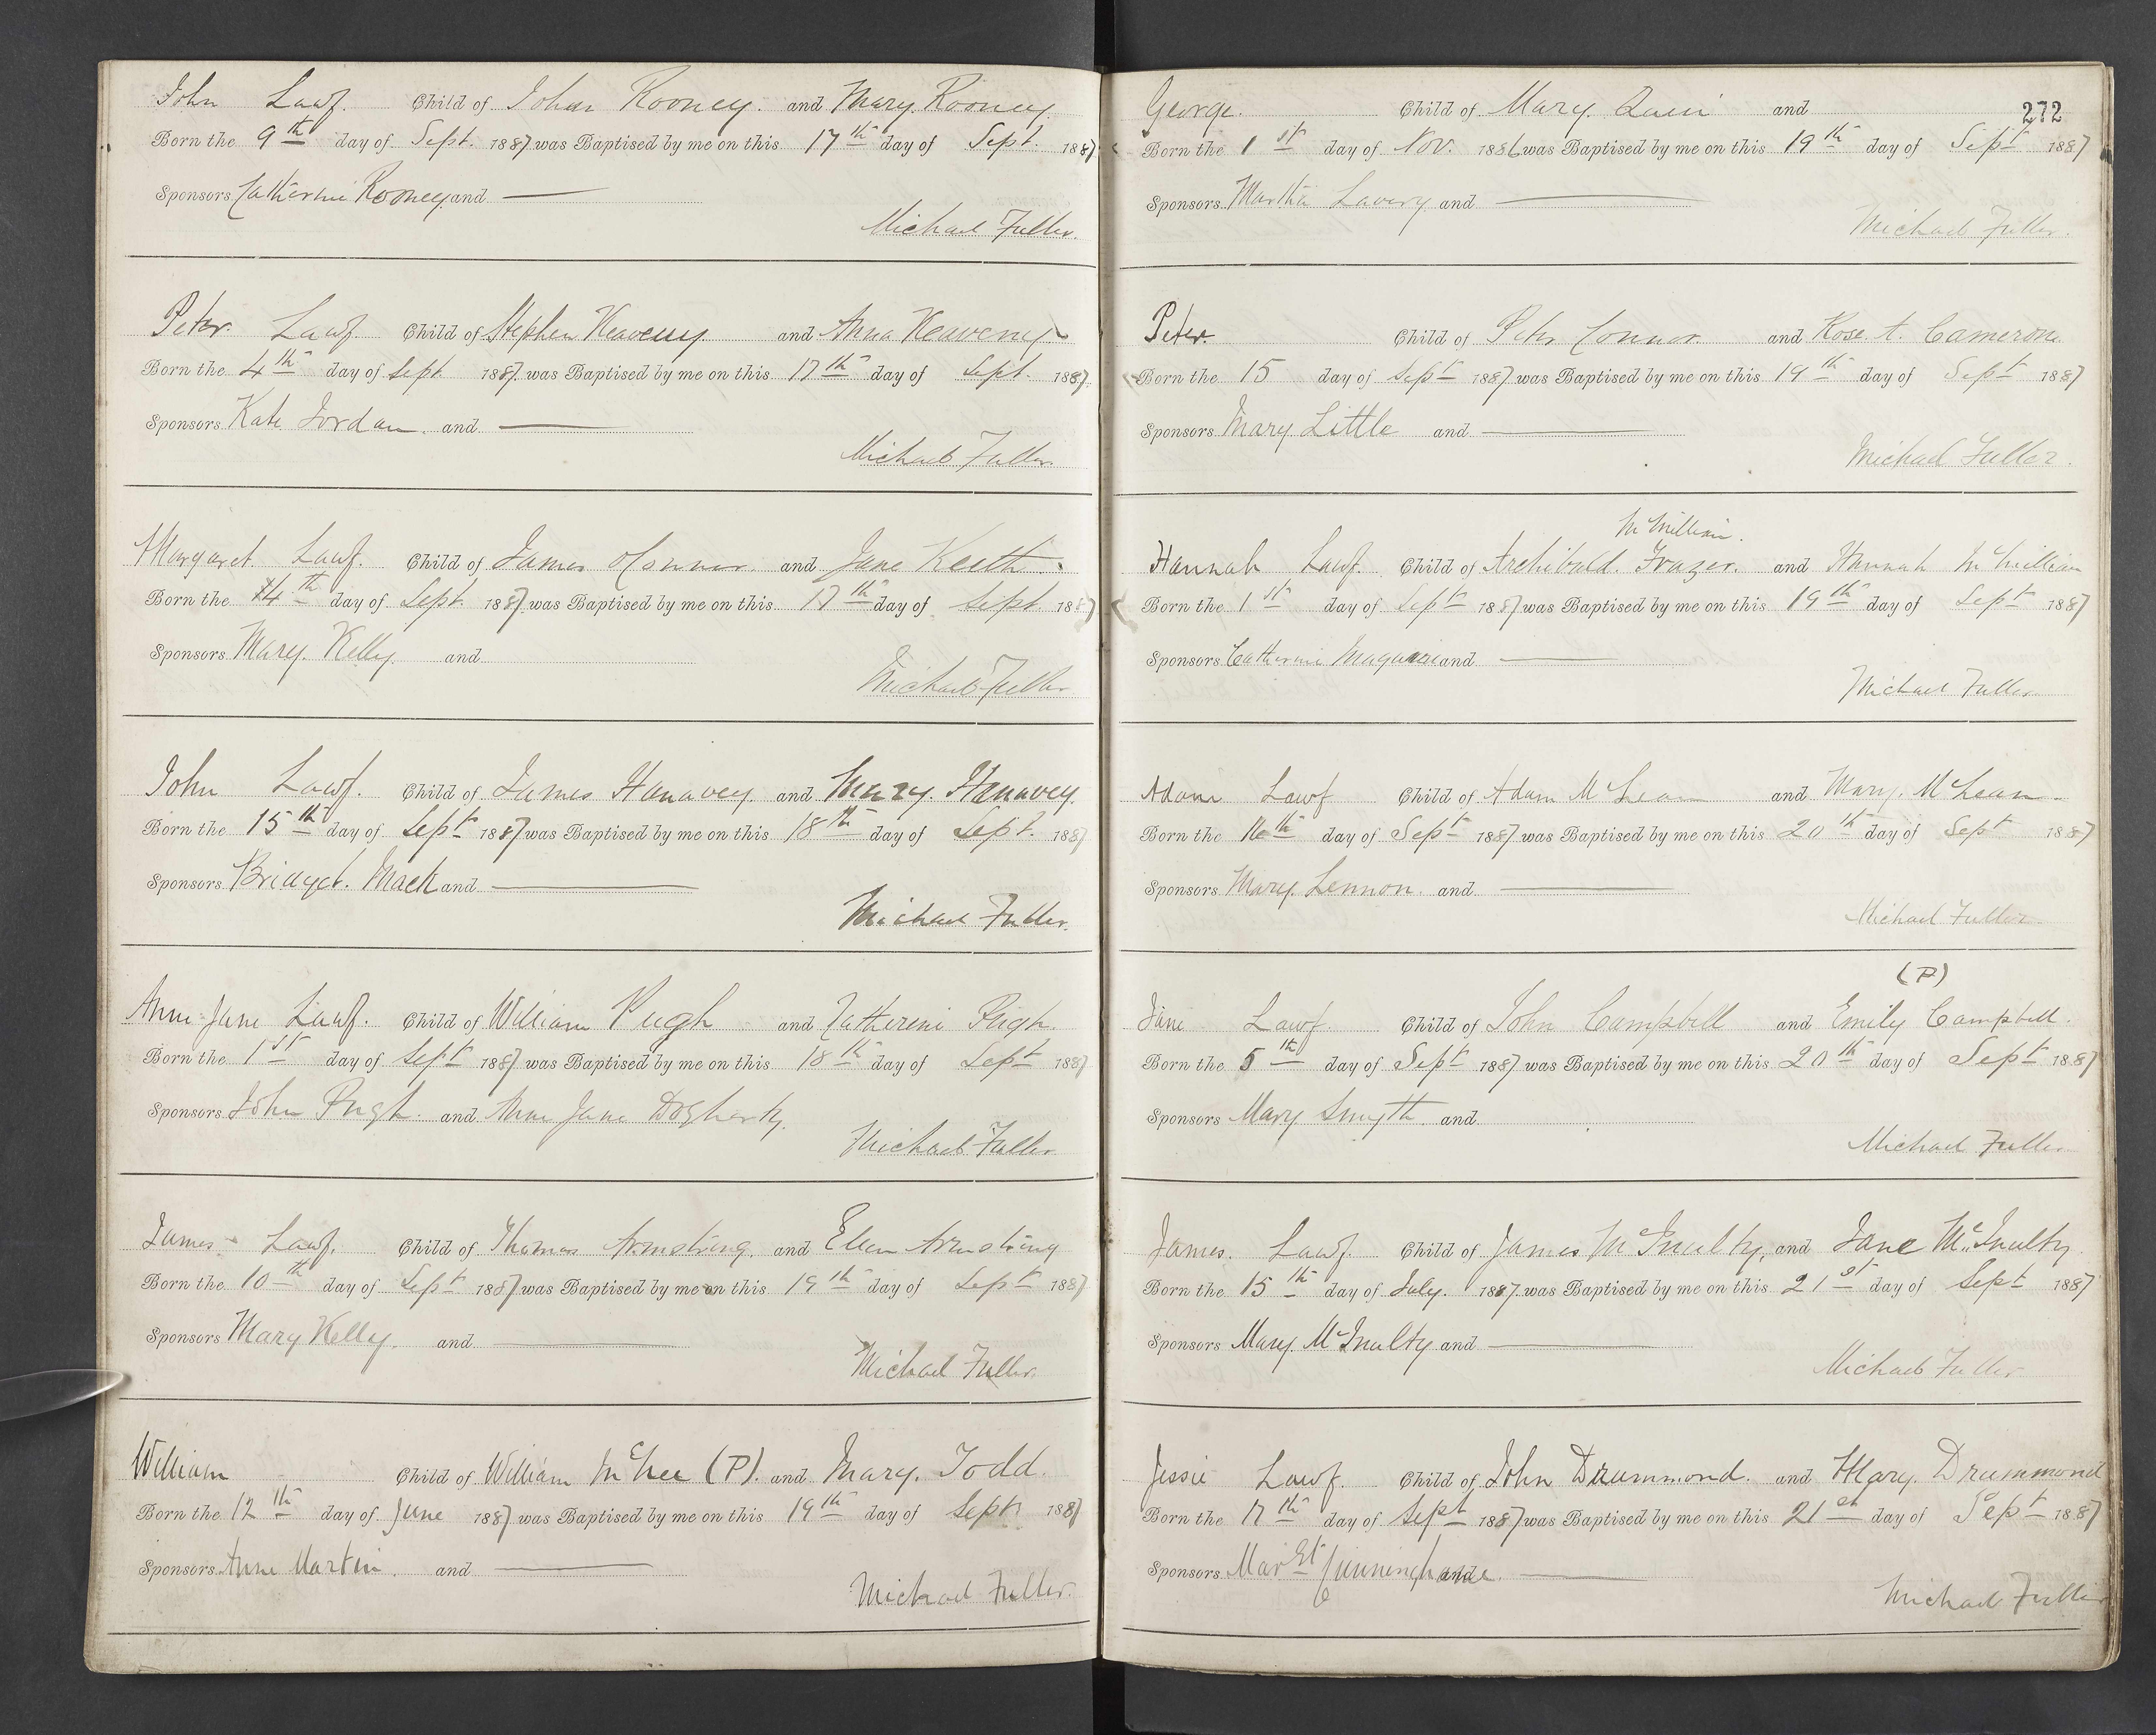 John Lawf. Child of John Rooney. and Mary Rooney.
Born the 9th day of Sept. 1887 was Baptised by me on this 17th day of Sept. 1887
Sponsors Catherine Rooney and —
Michael Fuller.
Peter Lawf. Child of Stephen Keaveny and Anna Keaveny
Born the 4th day of Sept 1887 was Baptised by me on this 17th day of Sept. 1887
Sponsors Kate Jordan and —
Michael Fuller
Margaret Lawf. Child of James OConnor and Jane Keith.
Born the 14th day of Sept. 1887 was Baptised by me on this 17th day of Sept. 1887
Sponsors Mary Kelly and
Michael Fuller
John Lawf. Child of James Hanavey and Mary. Hanavey.
Born the 15th day of Sept 1887 was Baptised by me on this 18th day of Sept. 1887
Sponsors Bridget. Mack and —
Michael Fuller.
Anne Jane Lawf. Child of William Pugh and Catherine Pugh.
Born the 1st day of Sept 1887 was Baptised by me on this 18th day of Sept 1887
Sponsors John Pugh. and Anne Jane Dogherty.
Michael Fuller
James Lawf. Child of Thomas Armstrong. and Ellen Armstrong
Born the 10th day of Sept 1887 was Baptised by me on this 19th day of Sept 1887
Sponsors Mary Kelly. and —
Michael Fuller.
William Child of William (P). and Mary. Todd.
Born the 12th day of June 1887 was Baptised by me on this 19th day of Sept 1887
Sponsors Anne Martin. and —
Michael Fuller.
272
George. Child of Mary. Quin and
Born the 1st day of Nov. 1886 was Baptised by me on this 19th day of Sept 1887
Sponsors Martha Lavery and —
Michael Fuller.
Peter. Child of Peter Connor. and Rose. A. Cameron.
Born the 15 day of Sept 1887 was Baptised by me on this 19th day of Sept 1887
Sponsors Mary Little and —
Michael Fuller.
McMillian.
Hannah Lawf. Child of Archibald. Frazer. and Hannah McMillian
Born the 1st day of Sept 1887 was Baptised by me on this 19th day of Sept 1887
Sponsors Catherine and —
Michael Fuller
Adam Lawf Child of Adam McLean and Mary. McLean
Born the 16th day of Sept 1887 was Baptised by me on this 20th day of Sept 1887
Sponsors Mary. Lennon. and —
Michael Fuller
(P)
Jane Lawf Child of John Campbell and Emily Campbell.
Born the 5th day of Sept 1887 was Baptised by me on this 20th day of Sept 1887
Sponsors Mary Smyth and
Michael Fuller
James. Lawf. Child of James McInulty, and Jane McInulty.
Born the 15th day of July. 1887 was Baptised by me on this 21st day of Sept 1887
Sponsors Mary. McInulty and —
Michael Fuller
Jessie Lawf. Child of John Drummond. and Mary. Drummond
Born the 17th day of Sept 1887 was Baptised by me on this 21st day of Sept 1887
Sponsors Margt Cunninghame. and —
Michael Fuller